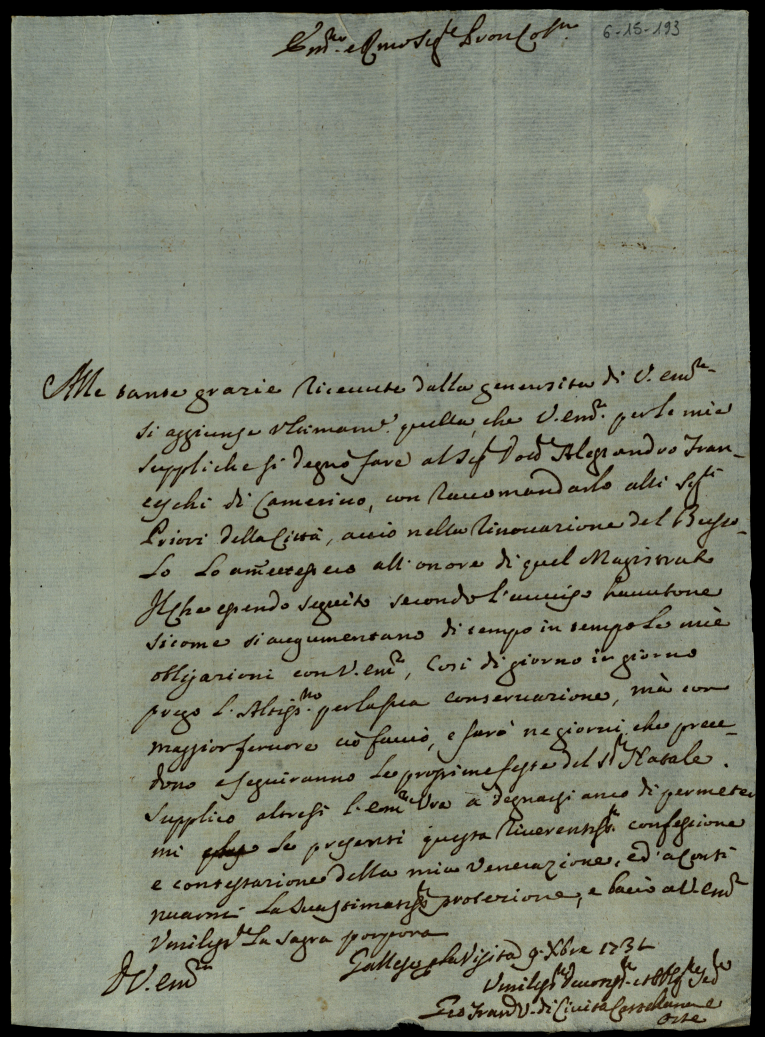 Em.mo e Rmo Sig.re Pron Col.mo
6-15-193
Alle tante grazie riceuute dalla generosità di V. em.za
si aggiunse ultimam.te quella, che V. em.za per le mie
suppliche si degnò fare al Sig.r Dott.r Alessandro Fran=
ceschi di Camerino, con raccomandarlo alli Sig.ri
Priori della Città, acciò nella rinouazione del Busso=
lo lo am̃ettessero all'onore di quel Magistrato
Il che essendo seguito secondo l'auuiso hauutone
sicome si augumentano di tempo in tempo le mie
obligazioni con V. em.za, così di giorno in giorno
prego l'Altiss.mo per la sua conseruazione, mà con
maggior feruore ciò faccio, e farò ne giorni, che prece=
dono e seguiranno le prossime feste del S.to Natale.
Supplico altresi l'em.za Vra à degnarsi anco di permeter
mi le presenti questa riuerentiss.ma confessione
e contestazione della mia venerazione, ed' à conti
nuarmi la sua stimatiss.ma protezione, e bacio a V. em.za
Vmiliss.te la sagra porpora
Gallese p la Visita 9. Xbre 1732
D V. em.za
Vmiliss.mo Deuotiss.mo et Obblig.mo Ser.re
Gio Fran.co V. di Ciuita Castellana e
Orte